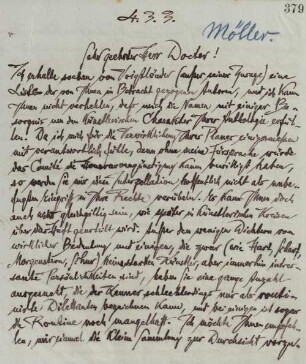 379
4. 3. 3.
Möller.
Sehr geehrter Herr Doctor!
Ich erhalte soeben von Voigtländer (außer seiner Zusage) eine
Liste der von Ihnen in Betracht gezogenen Autoren, und ich kann
Ihnen nicht verhehlen, daß mich die Namen mit einiger Be-
sorgnis um den künstlerischen Charakter Ihrer Anthologie erfül-
len. Da ich mich für die Verwirklichung Ihres Planes einigermaßen
mit verantwortlich fühle, denn ohne meine Fürsprache würde
das Comité die kaum bewilligt haben,
so werden Sie mir diese Interpellation hoffentlich nicht als unbe-
fugten Eingriff in Ihre Rechte verübeln. Es kann Ihnen doch
auch nicht gleichgiltig sein, wie später in künstlerischen Kreisen
über das Heft geurteilt wird. Außer den wenigen Dichtern von
wirklicher Bedeutung und einigen, die zwar (wie Hart, Scharf,
Morgenstern, Künstler, aber immerhin interes-
sante Persönlichkeiten sind, haben Sie eine ganze Anzahl
ausgewählt, die der Kenner schlechterdings nur als routi-
nierte Dilettanten bezeichnen kann, und bei einigen ist sogar
die Routine noch mangelhaft. Ich möchte Ihnen empfeh-
len, mir einmal die kleine Sammlung zur Durchsicht vorzu-